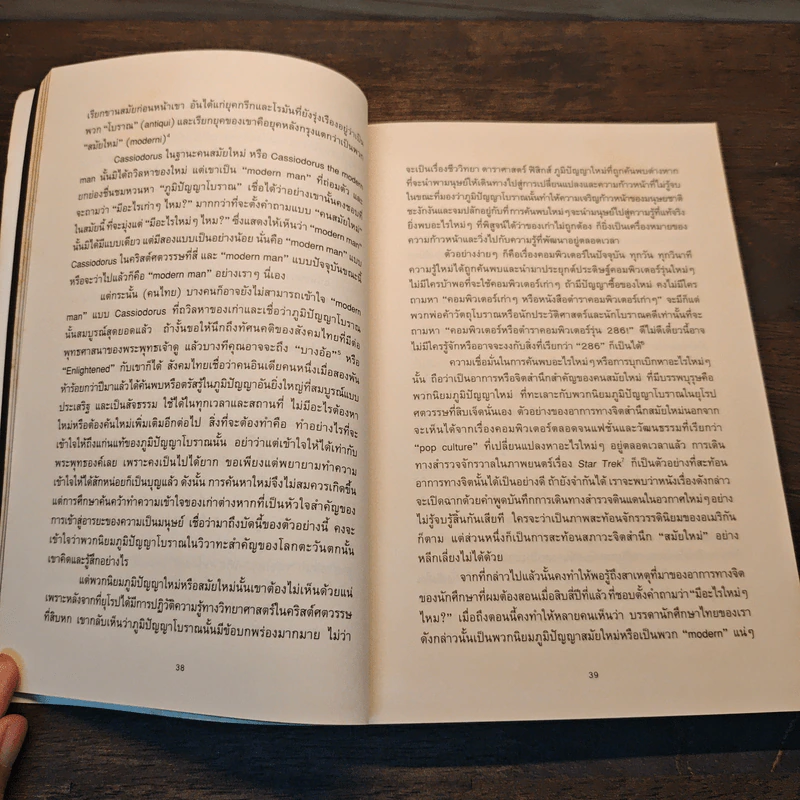 เรียกขานสมัยก่อนหน้าเขา อันได้แก่ยุคกรีกและโรมันที่ยังรุ่งเรืองอยู่ว่าเป็น
พวก "โบราณ" (antiqui) และเรียกยุคของเขาคือยุคหลังกรุงแตกว่าเป็นพวก
"สมัยใหม่" (moderni)⁴
Cassiodorus ในฐานะคนสมัยใหม่ หรือ Cassiodorus the modern
man นั้นมิได้ถวิลหาของใหม่ แต่เขาเป็น "modern man" ที่ถ่อมตัว และ
ยกย่องชื่นชมหวนหา "ภูมิปัญญาโบราณ" เชื่อได้ว่าอย่างเขานั้นคงชอบที่
จะถามว่า "มีอะไรเก่าๆ ไหม?" มากกว่าที่จะตั้งคำถามแบบ "คนสมัยใหม่"
ในสมัยนี้ ที่จะมุ่งแต่ "มีอะไรใหม่ๆ ไหม?" ซึ่งแสดงให้เห็นว่า "modern man"
นั้นมิได้มีแบบเดียว แต่มีสองแบบเป็นอย่างน้อย นั่นคือ "modern man" แบบ
Cassiodorus ในคริสต์ศตวรรษที่สี่ และ "modern man" แบบปัจจุบันขณะนี้
หรือจะว่าไปแล้วก็คือ "modern man" อย่างเราๆ นี่เอง
แต่กระนั้น (คนไทย) บางคนก็อาจยังไม่สามารถเข้าใจ "modern
man" แบบ Cassiodorus ที่ถวิลหาของเก่าและเชื่อว่าภูมิปัญญาโบราณ
นั้นสมบูรณ์สุดยอดแล้ว ถ้างั้นขอให้นึกถึงทัศนคติของสังคมไทยที่มีต่อ
พุทธศาสนาของพระพุทธเจ้าดู แล้วบางทีคุณอาจจะถึง "บางอ้อ"⁵ หรือ
"Enlightened" กับเขาก็ได้ สังคมไทยเชื่อว่าคนอินเดียคนหนึ่งเมื่อสองพัน
ห้าร้อยกว่าปีมาแล้วได้ค้นพบหรือตรัสรู้ในภูมิปัญญาอันยิ่งใหญ่ที่สมบูรณ์แบบ
ประเสริฐ และเป็นสัจธรรม ใช้ได้ในทุกเวลาและสถานที่ ไม่มีอะไรต้องหา
ใหม่หรือต้องค้นใหม่เพิ่มเติมอีกต่อไป สิ่งที่จะต้องทำคือ ทำอย่างไรที่จะ
เข้าใจให้ถึงแก่นแท้ของภูมิปัญญาโบราณนั้น อย่าว่าแต่เข้าใจให้ได้เท่ากับ
พระพุทธองค์เลย เพราะคงเป็นไปได้ยาก ขอเพียงแต่พยายามทำความ
เข้าใจให้ได้สักหน่อยก็เป็นบุญแล้ว ดังนั้น การค้นหาใหม่จึงไม่สมควรเกิดขึ้น
แต่การศึกษาค้นคว้าทำความเข้าใจของเก่าต่างหากที่เป็นหัวใจสำคัญของ
การเข้าสู่อารยะของความเป็นมนุษย์ เชื่อว่ามาถึงบัดนี้ของตัวอย่างนี้ คงจะ
เข้าใจว่าพวกนิยมภูมิปัญญาโบราณในวิวาทะสำคัญของโลกตะวันตกนั้น
เขาคิดและรู้สึกอย่างไร
แต่พวกนิยมภูมิปัญญาใหม่หรือสมัยใหม่นั้นเขาต้องไม่เห็นด้วยแน่
เพราะหลังจากที่ยุโรปได้มีการปฏิวัติความรู้ทางวิทยาศาสตร์ในคริสต์ศตวรรษ
ที่สิบหก เขากลับเห็นว่าภูมิปัญญาโบราณนั้นมีข้อบกพร่องมากมาย ไม่ว่า
38
จะเป็นเรื่องชีววิทยา ดาราศาสตร์ ฟิสิกส์ ภูมิปัญญาใหม่ที่ถูกค้นพบต่างหาก
ที่จะนำพามนุษย์ให้เดินทางไปสู่การเปลี่ยนแปลงและความก้าวหน้าที่ไม่รู้จบ
ในขณะที่มองว่าภูมิปัญญาโบราณนั้นทำให้ความเจริญก้าวหน้าของมนุษยชาติ
ชะงักงันและจมปลักอยู่กับที่ การค้นพบใหม่ๆ จะนำมนุษย์ไปสู่ความรู้ที่แท้จริง
ยิ่งพบอะไรใหม่ๆ ที่พิสูจน์ได้ว่าของเก่าไม่ถูกต้อง ก็ยิ่งเป็นเครื่องหมายของ
ความก้าวหน้าและวิ่งไปกับความรู้ที่พัฒนาอยู่ตลอดเวลา
ตัวอย่างง่ายๆ ก็คือเรื่องคอมพิวเตอร์ในปัจจุบัน ทุกวัน ทุกวินาที
ความรู้ใหม่ได้ถูกค้นพบและนำมาประยุกต์ประดิษฐ์คอมพิวเตอร์รุ่นใหม่ๆ
ไม่มีใครบ้าพอที่จะใช้คอมพิวเตอร์เก่าๆ ถ้ามีปัญญาซื้อของใหม่ คงไม่มีใคร
ถามหา "คอมพิวเตอร์เก่าๆ หรือหนังสือตำราคอมพิวเตอร์เก่าๆ" จะมีก็แต่
พวกพ่อค้าวัตถุโบราณหรือนักประวัติศาสตร์และนักโบราณคดีเท่านั้นที่จะ
ถามหา "คอมพิวเตอร์หรือตำราคอมพิวเตอร์รุ่น 286!" ดีไม่ดีเดี๋ยวนี้อาจ
ไม่มีใครรู้จักหรืออาจจะงงกับสิ่งที่เรียกว่า "286" ก็เป็นได้⁶
ความเชื่อมั่นในการค้นพบอะไรใหม่ๆ หรือการบุกเบิกหาอะไรใหม่ๆ
นั้น ถือว่าเป็นอาการหรือจิตสำนึกสำคัญของคนสมัยใหม่ ที่มีบรรพบุรุษคือ
พวกนิยมภูมิปัญญาใหม่ ที่ทะเลาะกับพวกนิยมภูมิปัญญาโบราณในยุโรป
ศตวรรษที่สิบเจ็ดนั่นเอง ตัวอย่างของอาการทางจิตสำนึกสมัยใหม่นอกจาก
จะเห็นได้จากเรื่องคอมพิวเตอร์ตลอดจนแฟชั่นและวัฒนธรรมที่เรียกว่า
"pop culture" ที่เปลี่ยนแปลงหาอะไรใหม่ๆ อยู่ตลอดเวลาแล้ว การเดิน
ทางสำรวจจักรวาลในภาพยนตร์เรื่อง Star Trek⁷ ก็เป็นตัวอย่างที่สะท้อน
อาการทางจิตนั้นได้เป็นอย่างดี ถ้ายังจำกันได้ เราจะพบว่าหนังเรื่องดังกล่าว
จะเปิดฉากด้วยคำพูดบันทึกการเดินทางสำรวจดินแดนในอวกาศใหม่ๆ อย่าง
ไม่รู้จบรู้สิ้นกันเสียที ใครจะว่าเป็นภาพสะท้อนจักรวรรดินิยมของอเมริกัน
ก็ตาม แต่ส่วนหนึ่งก็เป็นการสะท้อนสภาวะจิตสำนึก "สมัยใหม่" อย่าง
หลีกเลี่ยงไม่ได้ด้วย
จากที่กล่าวไปแล้วนั้นคงทำให้พอรู้ถึงสาเหตุที่มาของอาการทางจิต
ของนักศึกษาที่ผมต้องสอนเมื่อสิบสี่ปีที่แล้ว ที่ชอบตั้งคำถามว่า "มีอะไรใหม่ๆ
ไหม?" เมื่อถึงตอนนี้คงทำให้หลายคนเห็นว่า บรรดานักศึกษาไทยของเรา
ดังกล่าวนั้นเป็นพวกนิยมภูมิปัญญาสมัยใหม่หรือเป็นพวก "modern" แน่ๆ
39